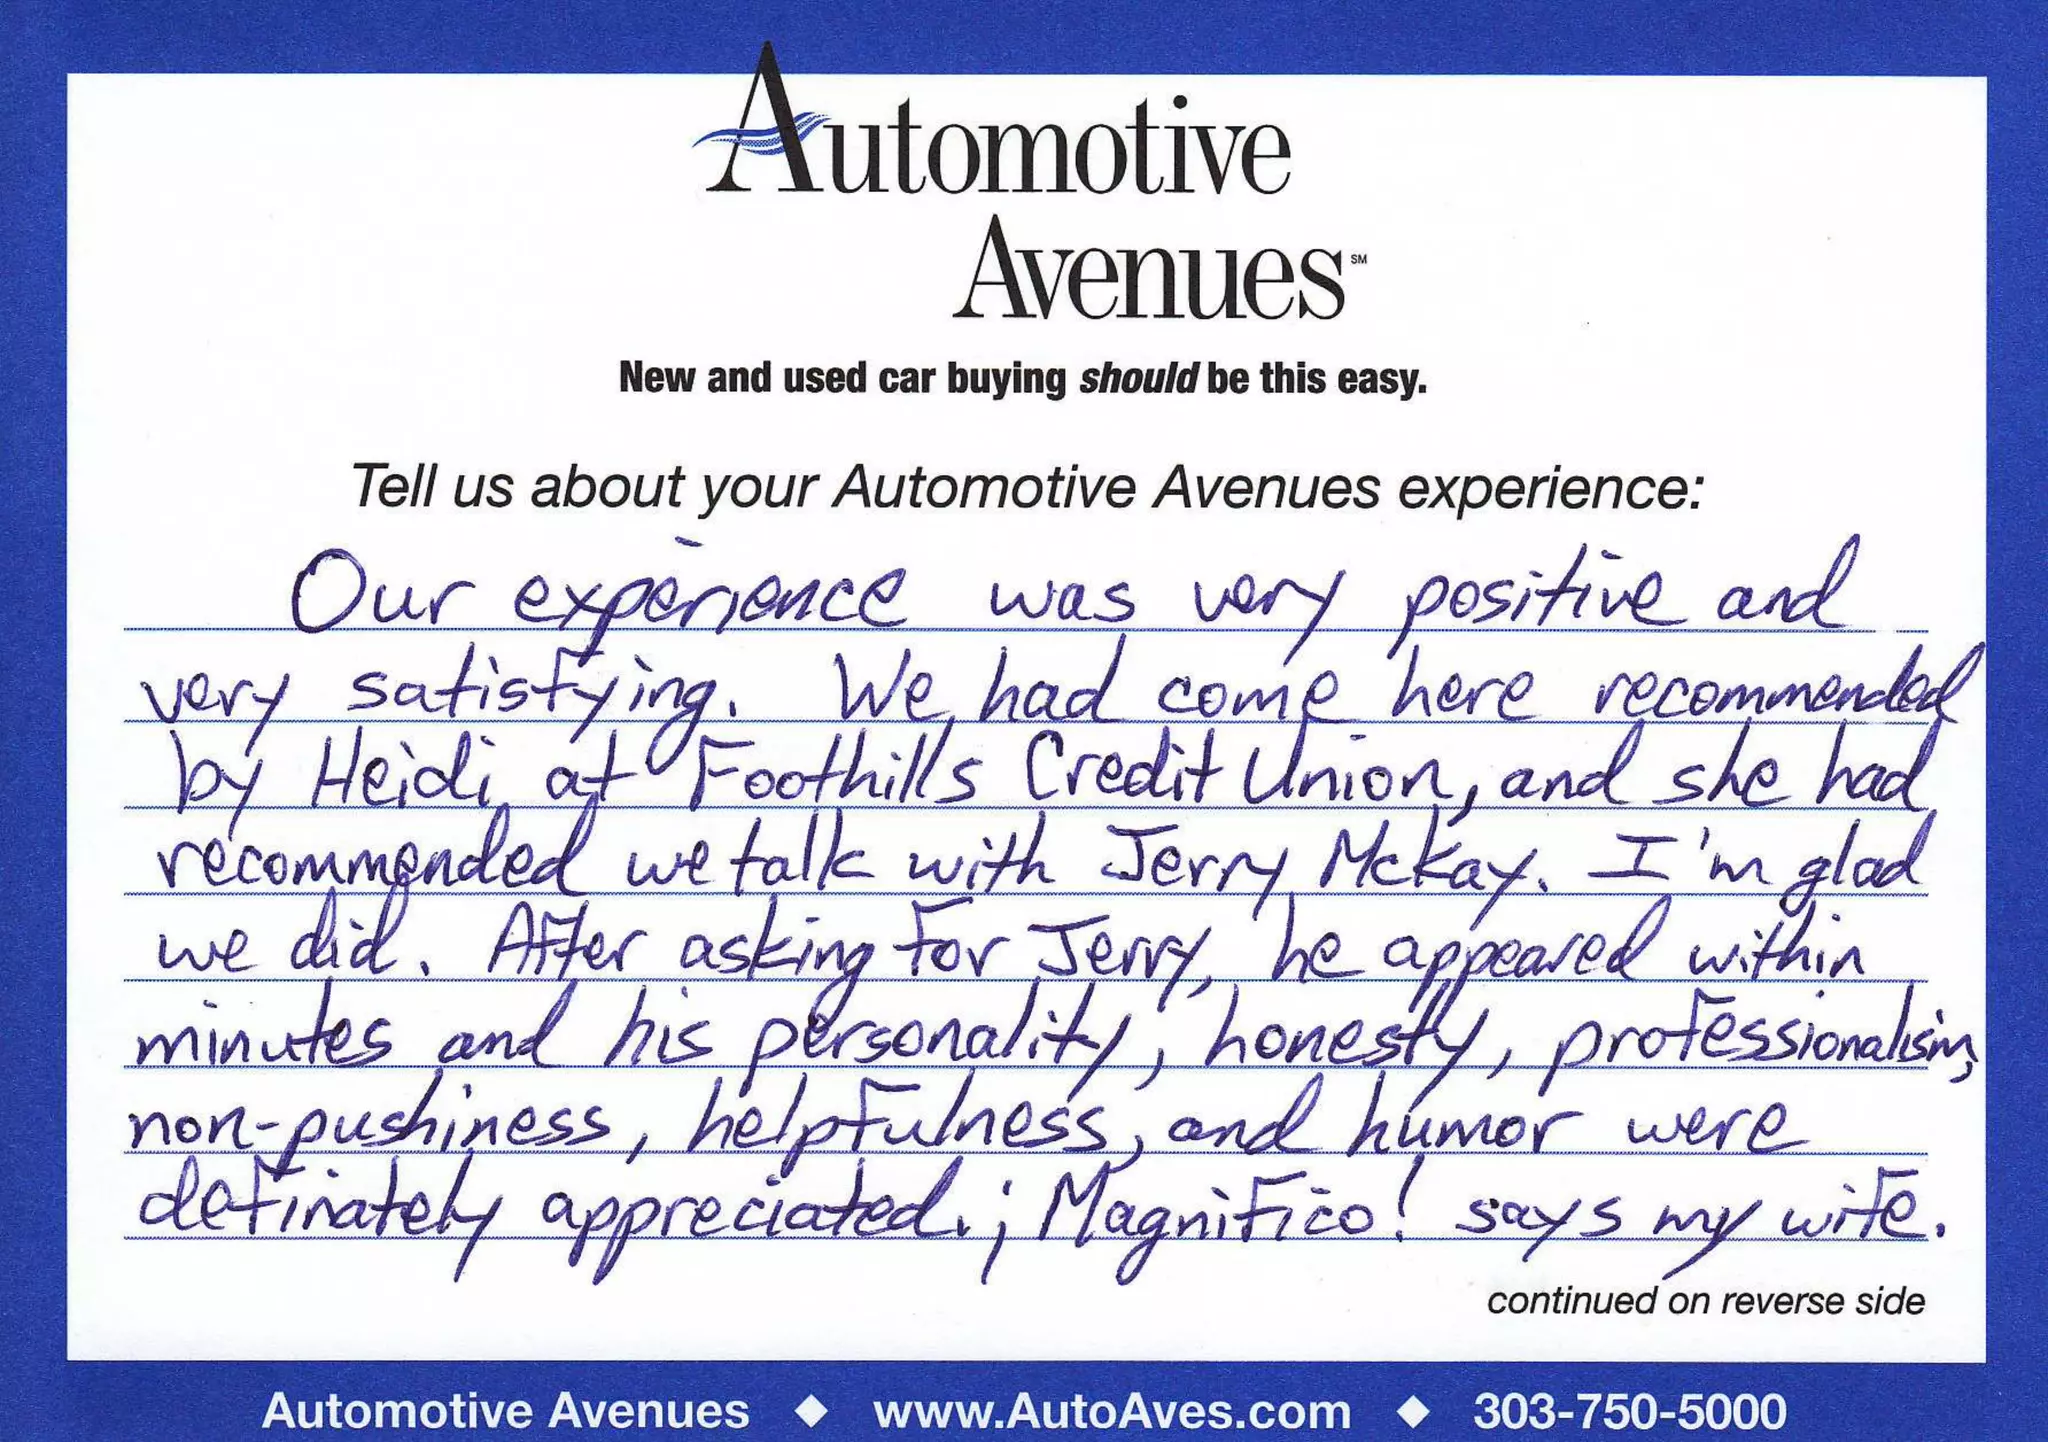 Automotive
Avenues℠
New and used car buying should be this easy.
Tell us about your Automotive Avenues experience:
Our experience was very positive and
very satisfying. We had come here recommended
by Heidi at Foothills Credit Union, and she had
recommended we talk with Jerry McKay. I'm glad
we did. After asking for Jerry, he appeared within
minutes and his personality, honesty, professionalism,
non-pushiness, helpfulness, and humor were
definately appreciated. ; Magnifico! says my wife.
continued on reverse side
Automotive Avenues ◆ www.AutoAves.com ◆ 303-750-5000